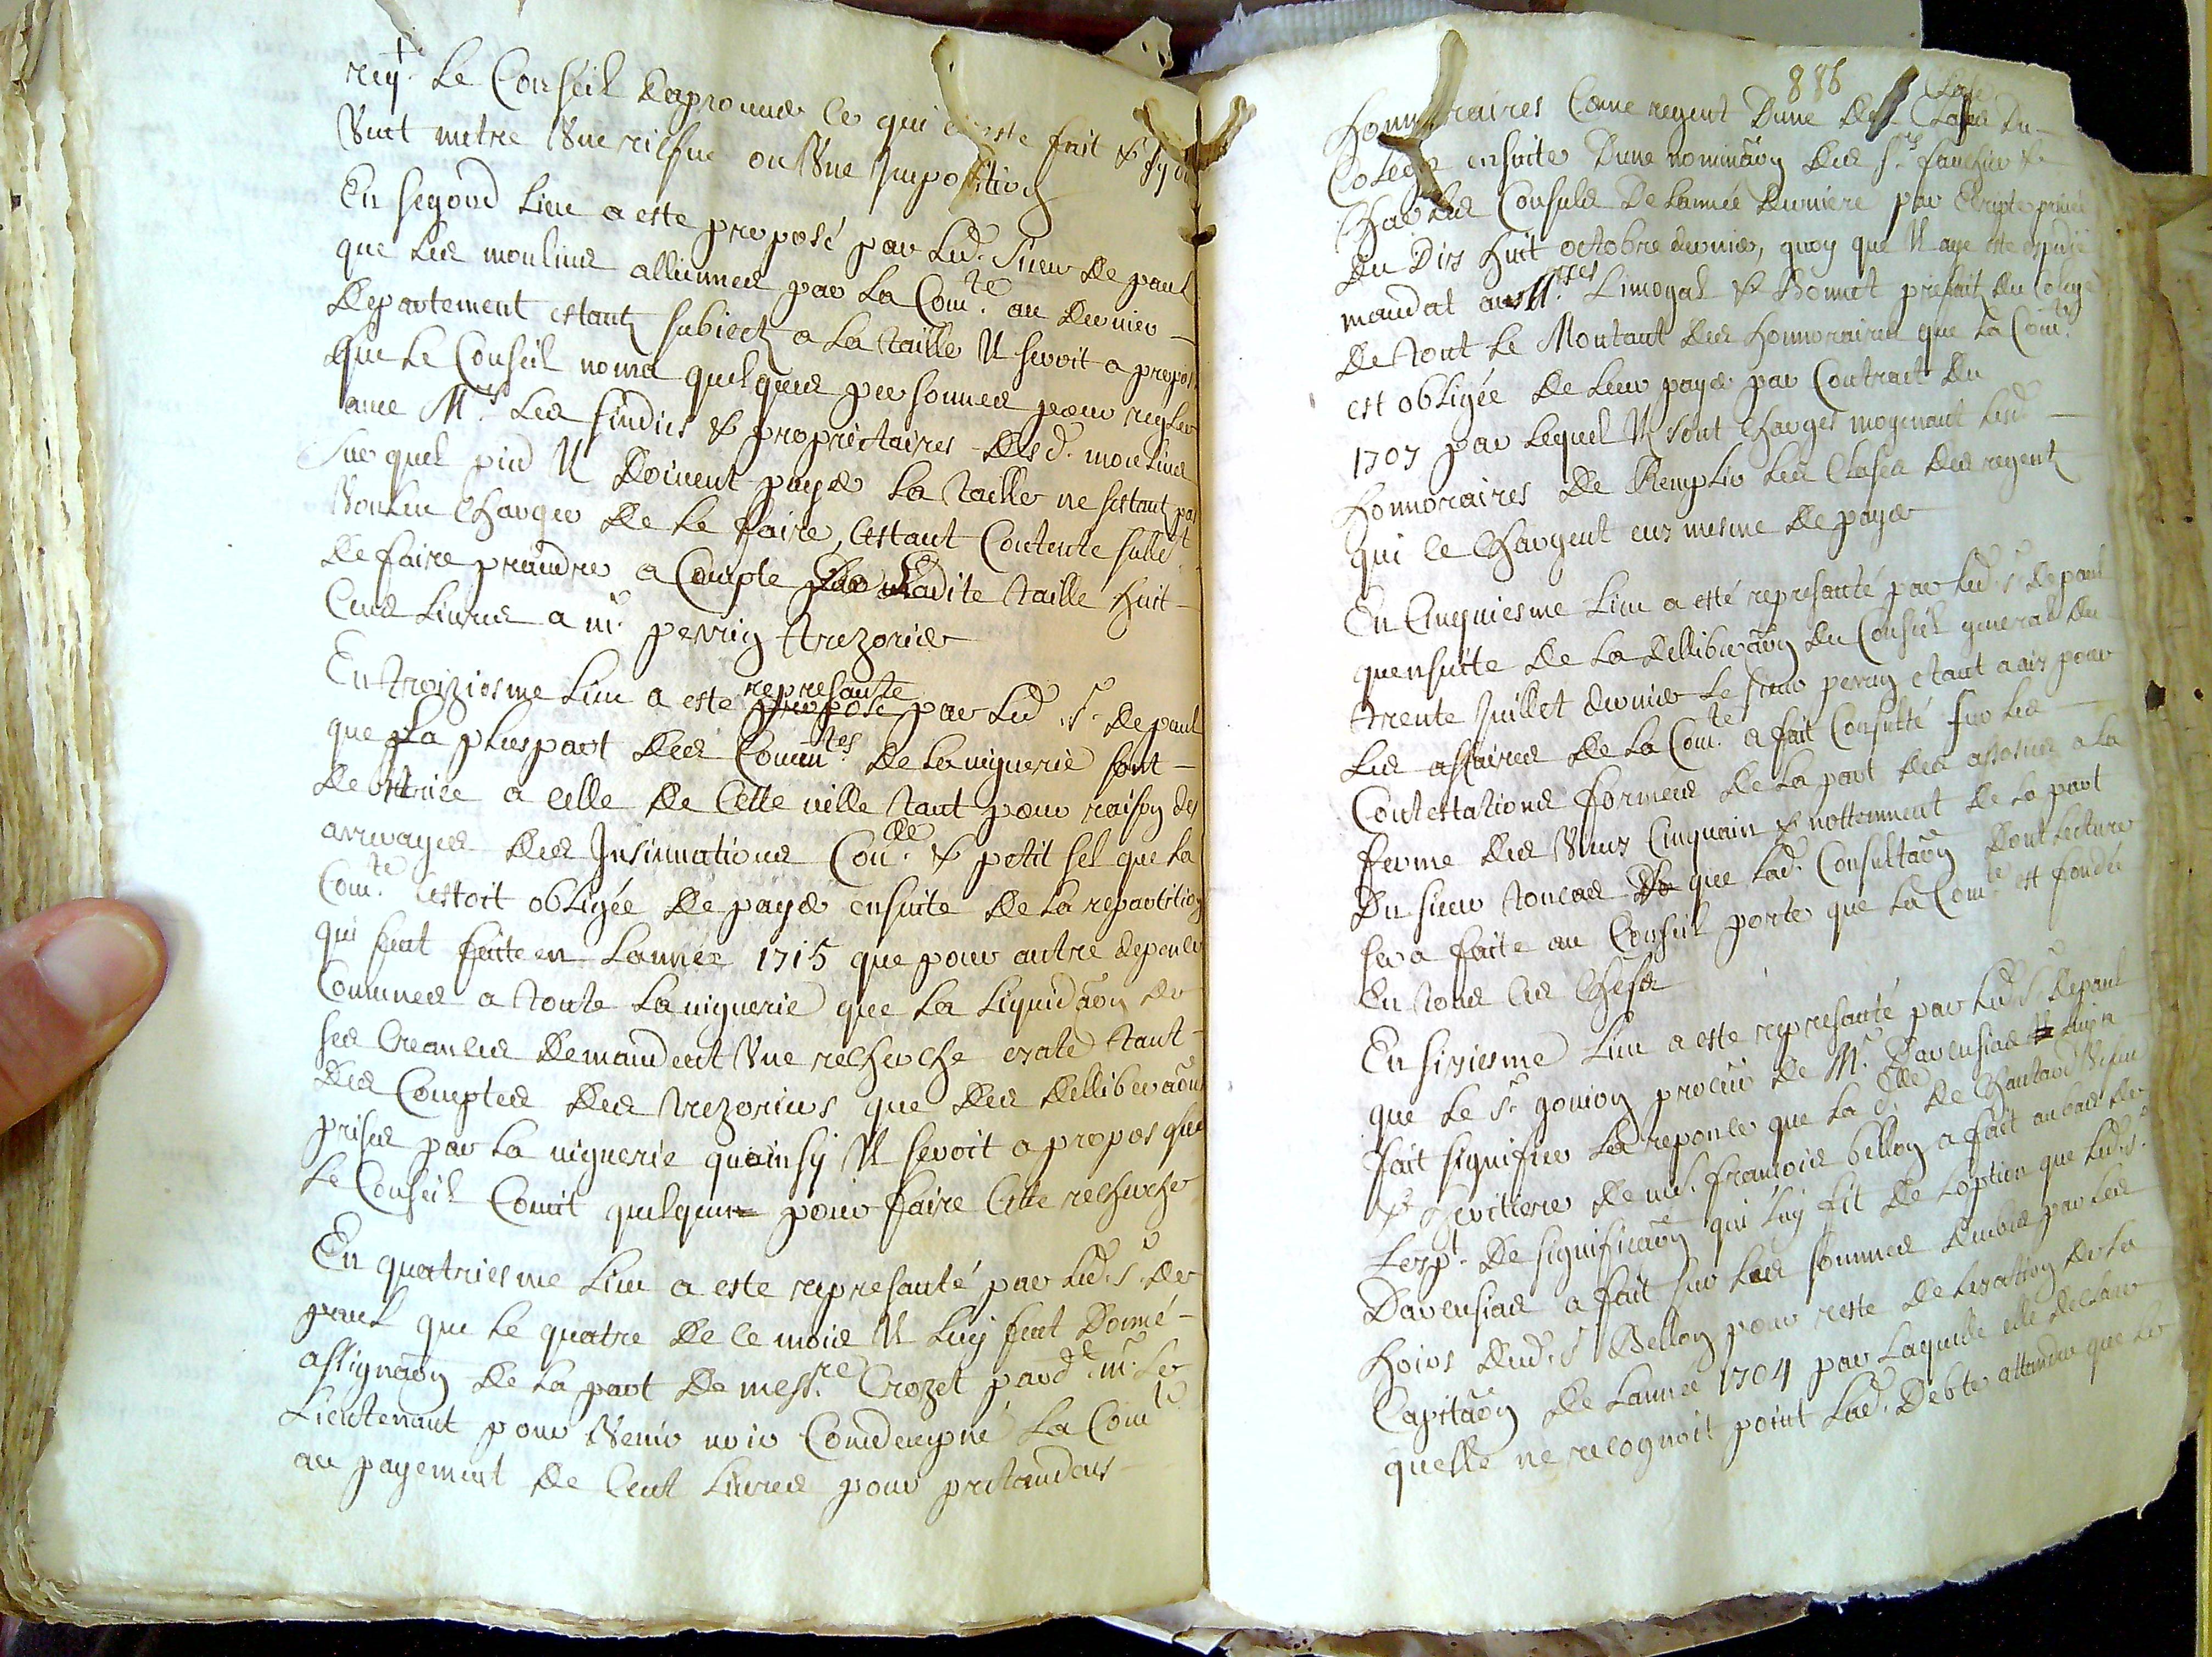 Le Conseil daprouver ce qui a este fait &
Veut metre Une riesve ou Une Imposition
En segond Lieu a este proposé par Led. Sieur De paul
que Les moulins alliennes par La Com.te au dernier
Departement estantz subiectz a La taille Il seroit a propos
que Le Conseil noma quelques personnes pour regler
avec M.rs Les sindics & proprietaires desd. moulins
Sur quel pied Il doivent payer La taille ne sestant pas
Vouleu Charger de Le faire, Cestant Contente
de faire prandre a Compte de Ladite taille huit
Cens Livres a m.e perrin trezorier
En troiziesme Lieu a este represante par Led. S.r de paul
que La pluspart des Comun.tes de La viguerie sont
debitrice a celle de Cette ville tant pour raison des
arrerages des Insinuations & petit sel que La
Com.te Cestoit obligée de payer ensuite de La repartition
qui feut faite en Lannée 1715 que pour autre depences
Comunes a toute La viguerie que La Liquidaôn de
ses Creances demandent Une recherche exate tant
des Comptes des trezoriers que des delliberaôns
prises par La viguerie quainsy Il seroit a propos que
Le Conseil Comit quelqun pour faire Cette recherche
En quatriesme Lieu a este represanté par Led. S.r de
paul que Le quatre de Ce mois Il Luy feut Donné
assignaôn de La part de mess.re Crozet pard.t m.r Le
Lieutenant pour Venir voir Comdempné La Com.te
au payement de Cent Livres pour pretandeus
886
Honnoraires Come regent Dune des Clase du
Colege ensuite Dune nominaôn des s.rs fauchier &
Consuls de Lannée derniere par Ecripte privée
du Dix huit octobre dernier, quoy que Il aye este expedié
mandat aus M.res Limogal & Bonnet prefait du Colege
de tout Le Montant des honnoraires que La Com.te
est obligée de Leur payer par Contract du
1707 par Lequel Il sont Charges moyenant Lesd.
Honnoraires de Remplir Les Clases des regentz
qui Ce Chargent eux mesme de payer
En Cinquiesme Lieu a esté represanté par Led. S.r de paul
quensuite de La delliberaôn du Conseil general du
trente Juillet dernier Le sieur perrin etant a aix pour
Les affaires de La Com.te a fait Consulté sur Les
Contestations formées de La part des assosies a La
ferme des Vins Cinquain & nottemment de La part
Du sieur toucas que Lad. Consultaôn dont Lecture
sera faite au Conseil porte que La Com.te est fondée
En tous Ces Chefs
En sixiesme Lieu a este represanté par Led. S.r de paul
que Le S.r gonion procur. de M.r Davensias Luy a
fait signifier La reponce que La d.lle de Chautard Vefve
& heritiere de me. francois bellon a fait au bas de
Lexp.t de significaôn qui Luy fit de Loption que Led. S.r
Davensias a fait sur Les sommes deubes par Les
hoirs dud. S.r Bellon pour reste de Lexaction de La
Capitaôn de Lannée 1704 par Laquelle elle declare
quelle ne recognoit point Lad. debte attandeu que Le